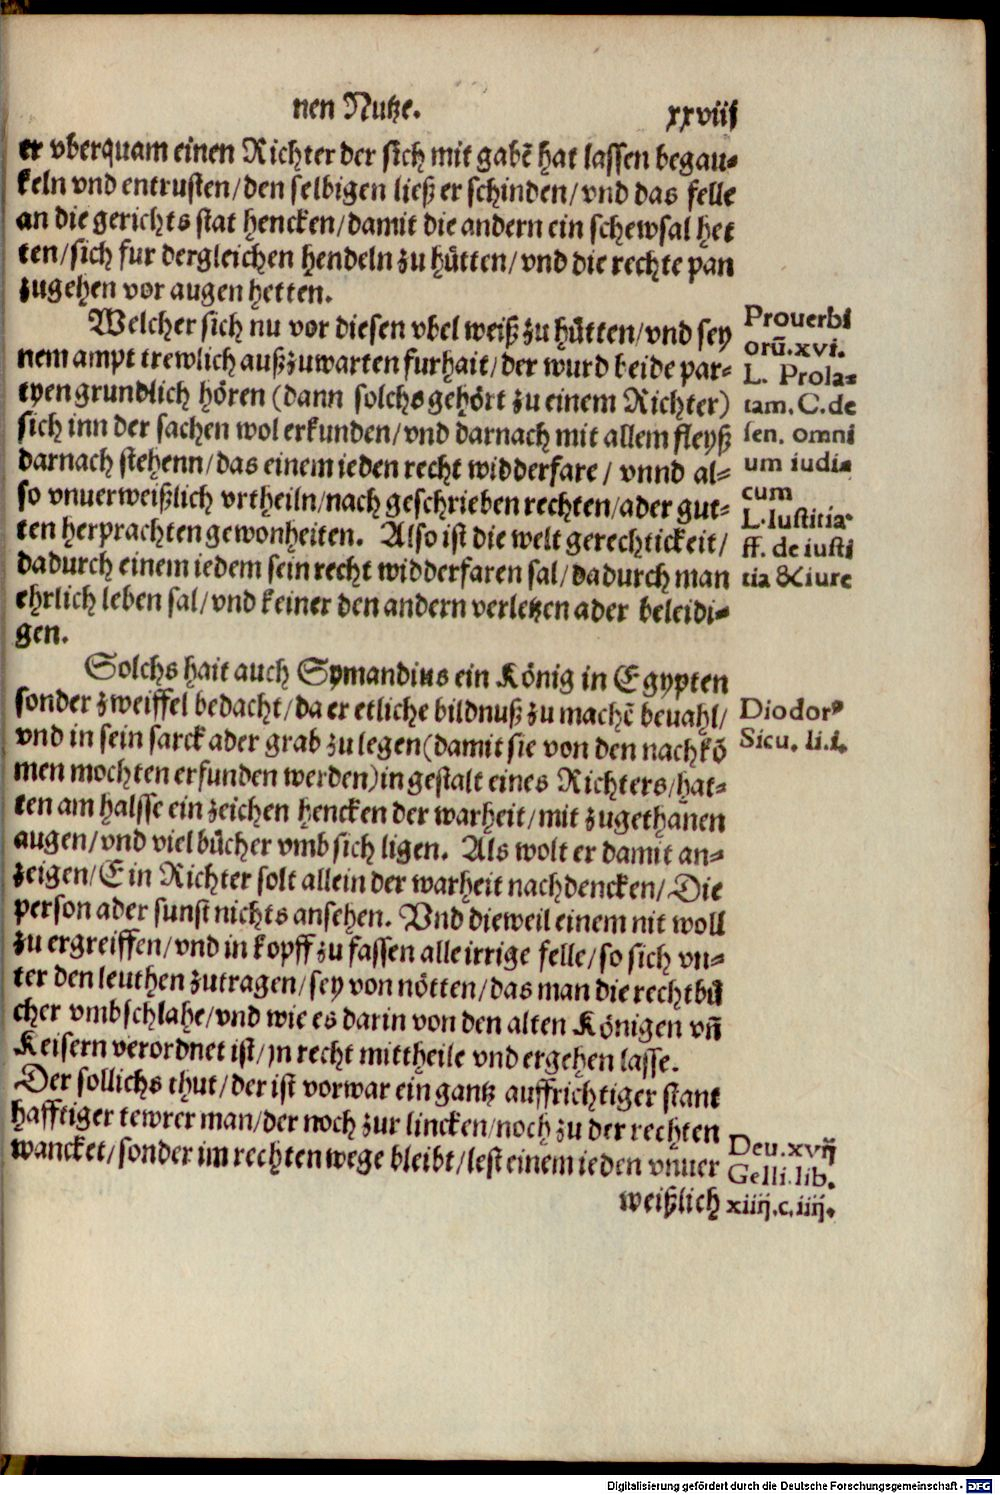 nen Nutze. xxviij
er vberquam einen Richter der sich mit gabē hat lassen begau-
keln vnd entrusten/den selbigen ließ er schinden/vnd das felle
an die gerichts stat hencken/damit die andern ein schewsal het
ten/sich fur dergleichen hendeln zu hütten/vnd die rechte pan
zugehen vor augen hetten.
Welcher sich nu vor diesen vbel weiß zu hütten/vnd sey
nem ampt trewlich außzuwarten furhait/der wurd beide par-
tyen grundlich hören (dann solchs gehört zu einem Richter)
sich inn der sachen wol erkunden/vnd darnach mit allem fleyß
darnach stehenn/das einem ieden recht widderfare/ vnnd al-
so vnuerweißlich vrtheiln/nach geschrieben rechten/ader gut-
ten herprachten gewonheiten. Also ist die welt gerechtickeit/
dadurch einem iedem sein recht widderfaren sal/dadurch man
ehrlich leben sal/vnd keiner den andern verletzen ader beleidi-
gen.
Prouerbi
orū.xvi.
L. Prola-
tam. C. de
sen. omni
um iudi-
cum
L. Iustitia
ff. de iusti
tia & iure
Solchs hait auch Symandius ein König in Egypten
sonder zweiffel bedacht/da er etliche bildnuß zu machē beuahl/
vnd in sein sarck ader grab zu legen(damit sie von den nachkō
men mochten erfunden werden)in gestalt eines Richters/hat-
ten am halsse ein zeichen hencken der warheit/mit zugethanen
augen/vnd viel bücher vmb sich ligen. Als wolt er damit an-
zeigen/Ein Richter solt allein der warheit nachdencken/Die
person ader sunst nichts ansehen. Vnd dieweil einem nit woll
zu ergreiffen/vnd in kopff zu fassen alle irrige felle/so sich vn-
ter den leuthen zutragen/sey von nötten/das man die rechtbü
cher vmbschlahe/vnd wie es darin von den alten Königen vñ
Keisern verordnet ist/jn recht mittheile vnd ergehen lasse.
Diodorꝰ
Sicu. li.i.
Der sollichs thut/der ist vorwar ein gantz auffrichtiger stant
hafftiger tewrer man/der noch zur lincken/noch zu der rechten
wancket/sonder im rechten wege bleibt/lest einem ieden vnuer
weißlich
Deu.xvij
Gelli.lib.
xiiij.c.iiij.
Digitalisierung gefördert durch die Deutsche Forschungsgemeinschaft - DFG